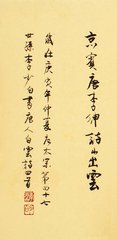 京賓唐李紳詩山出雲
歲在庚寅年仲夏唐太宗第四十七
世孫李少白書唐人白雲詩四首